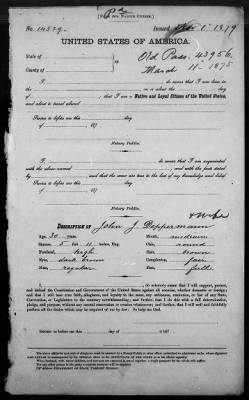 Pd
[FOR NATIVE CITIZEN.]
No. 14529. Issued Nov 1st 1879
UNITED STATES OF AMERICA.
State of Old Pass. 43956.
County of March 11th 1875
I, do swear that I was born in
on or about the
day
of , that I am a Native and Loyal Citizen of the United States,
and about to travel abroad.
Sworn to before me, this day
of , 187
Notary Public.
I, do swear that I am acquainted
with the above named , and with the facts stated
by , and that the same are true to the best of my knowledge and belief.
Sworn to before me, this day
of , 187
Notary Public.
& Wife
DESCRIPTION OF John J. Doppermann
Age, 30 years. Mouth, medium
Stature, 5 feet 11 inches, Eng. Chin, round
Forehead, high Hair, brown
Eyes, dark brown Complexion, fair
Nose, regular Face, full
I, do solemnly swear that I will support, protect,
and defend the Constitution and Government of the United States against all enemies, whether domestic or foreign;
and that I will bear true faith, allegiance, and loyalty to the same, any ordinance, resolution, or law of any State,
Convention, or Legislature to the contrary notwithstanding; and further, that I do this with a full determination,
pledge, and purpose, without any mental reservation or evasion whatsoever; and further, that I will well and faithfully
perform all the duties which may be required of me by law: So help me God.
Sworn to before me, this day
of 187
Notary Public.